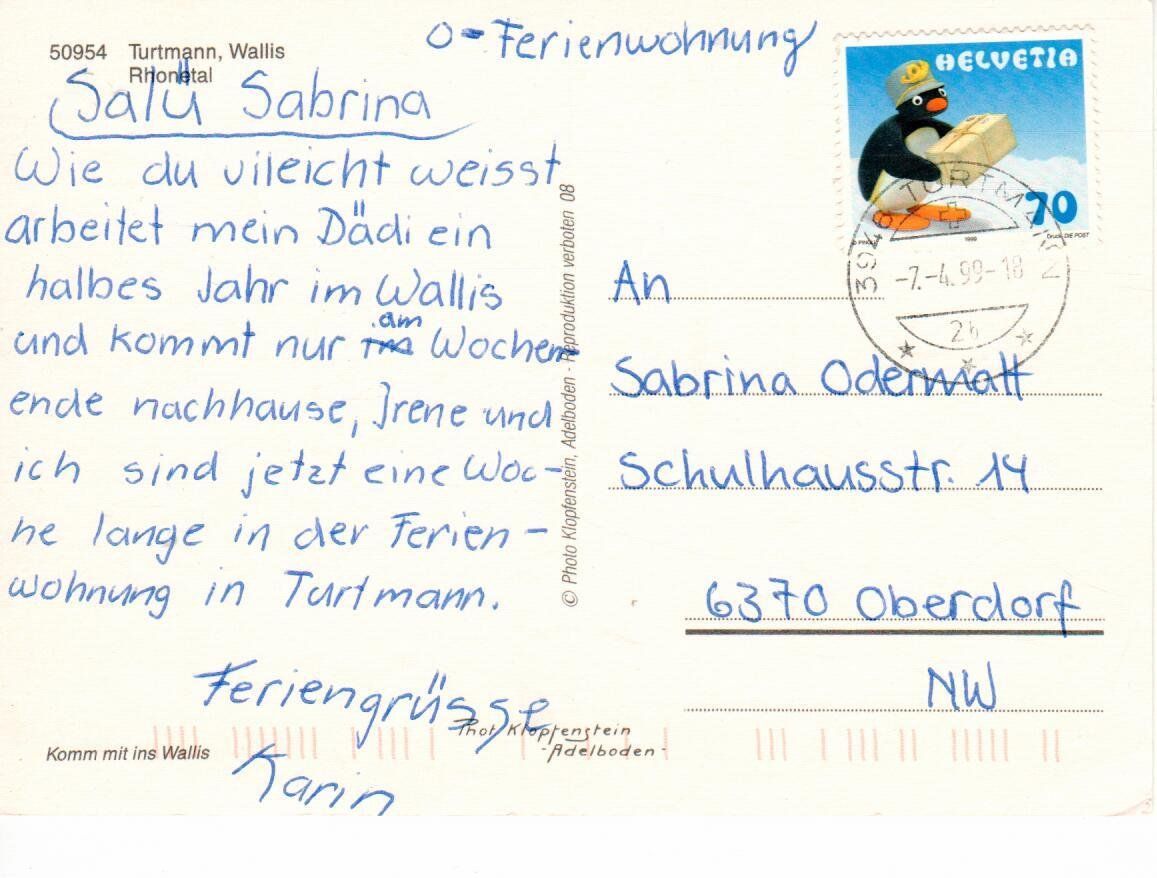 50954 Turtmann, Wallis
Rhonetal
O-Ferienwohnung
Salü Sabrina
Wie du vileicht weisst
arbeitet mein Dädi ein
halbes Jahr im Wallis
und kommt nur im am Wochen-
ende nachhause, Irene und
ich sind jetzt eine Woc-
he lange in der Ferien-
wohnung in Turtmann.
Feriengrüsse
Karin
Komm mit ins Wallis
Phot Klopfenstein
-Adelboden-
© Photo Klopfenstein, Adelboden - Reproduktion verboten 08
HELVETIA
70
1999
Druck: DIE POST
3946 TURTMANN
-7.-4.99-18
2b
An
Sabrina Odermatt
Schulhausstr. 14
6370 Oberdorf
NW